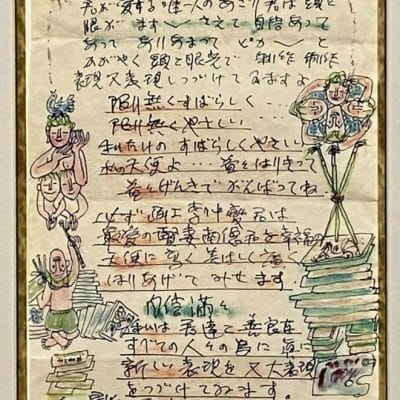 君が愛する唯一人のあごり君は頭と
眼がます〱 さえて 自信あって
あって ありあまって ピカ〱と
かがやく 頭と眼光で 制作 制作
表現又表現しつづけてゐますよ
限り無くすばらしく…
限り無くやさしい…
私だけの すばらしくやさしい
私の天使よ…益々はりきって
益々げんきで がんばってね.
必ず 画工李仲燮君は
最愛の賢妻南徳君を
天使に高く美しく広く
ほりあげて みせます.
自信満々
君達と善良な
すべての人々の為に 真に
新しい表現を 又大表現
をつづけてゐます.